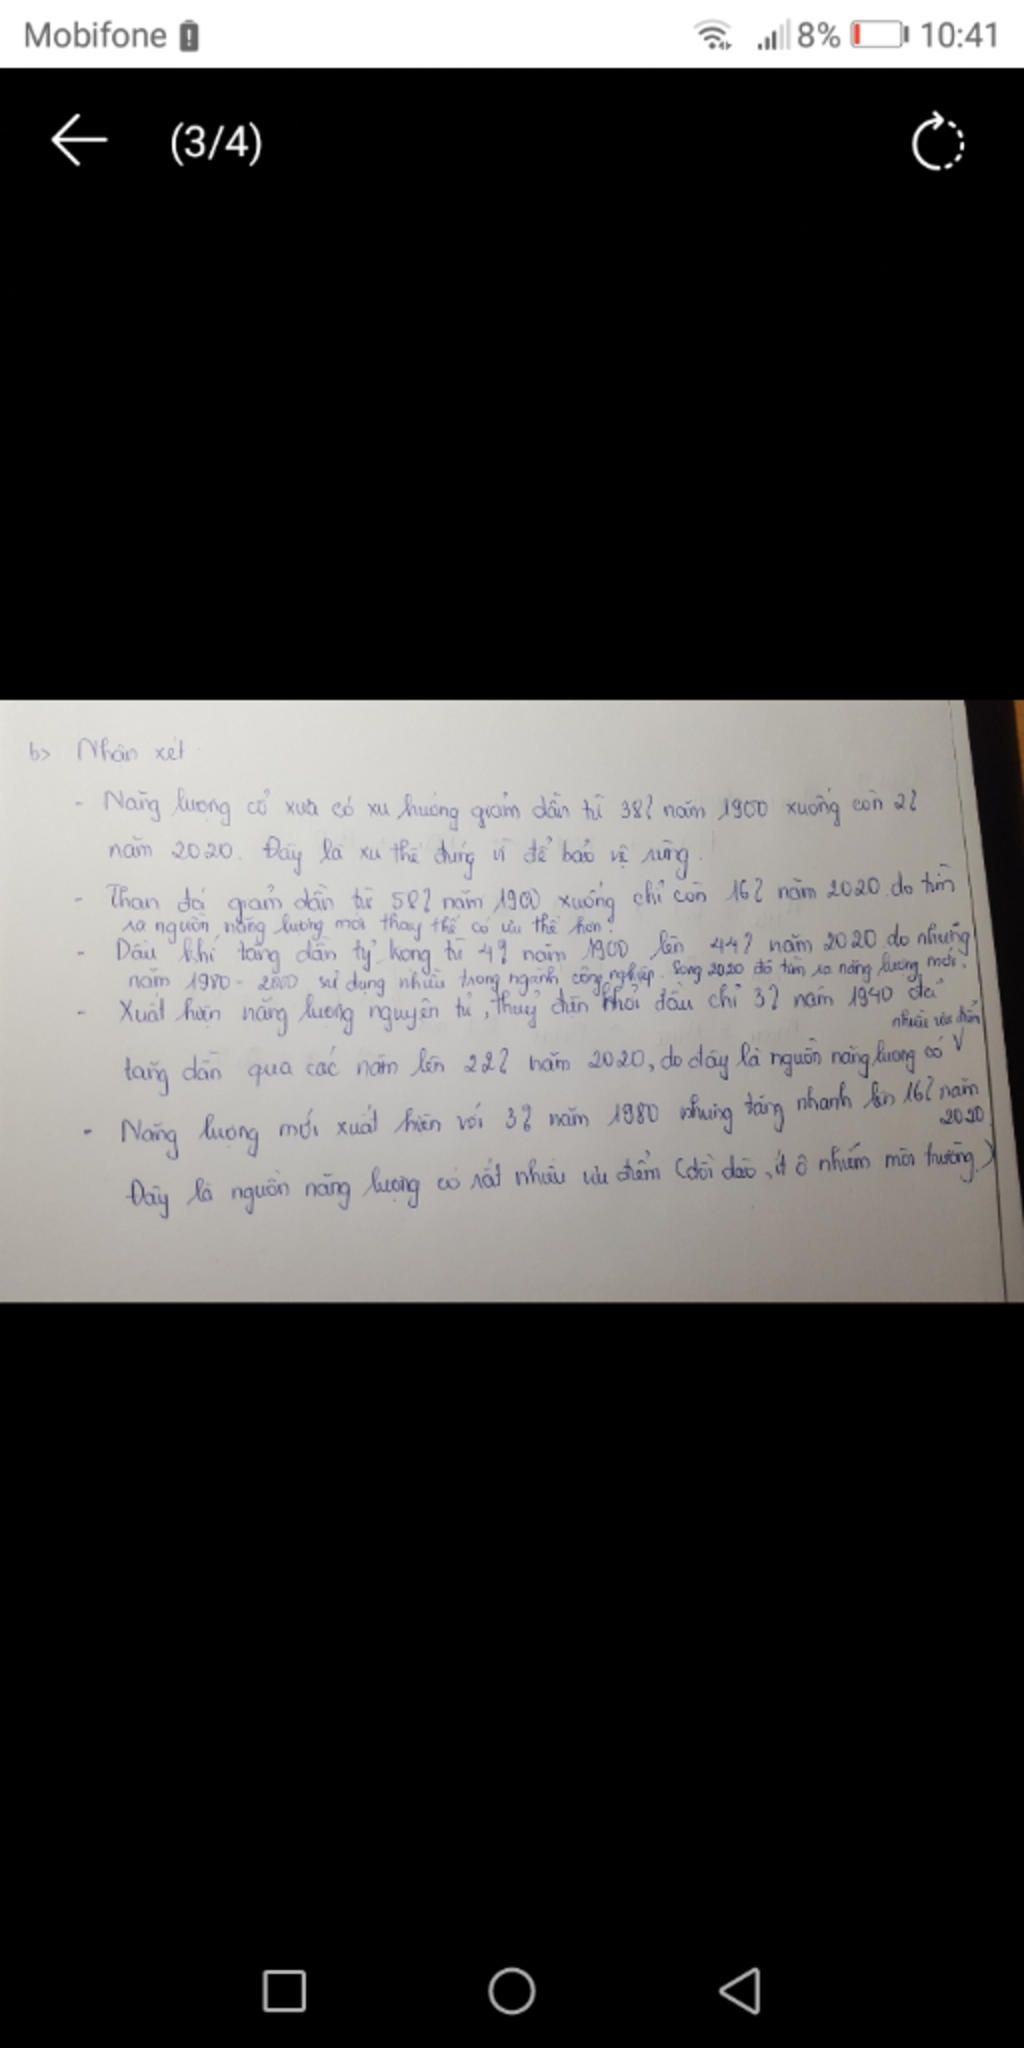 Mobifone 8% 10:41
(3/4)
b> Nhận xét
- Năng lượng cổ xưa có xu hướng giảm dần từ 38% năm 1900 xuống còn 2%
năm 2020. Đây là xu thế đúng vì để bảo vệ rừng.
- Than đá giảm dần từ 58% năm 1900 xuống chỉ còn 16% năm 2020 do tìm
ra nguồn năng lượng mới thay thế có ưu thế hơn.
- Dầu khí tăng dần tỷ trọng từ 4% năm 1900 lên 44% năm 2020 do những
năm 1980 - 2000 sử dụng nhiều trong ngành công nghiệp. Song 2020 đã tìm ra năng lượng mới.
- Xuất hiện năng lượng nguyên tử, thuỷ điện khởi đầu chỉ 3% năm 1940 đã
nhiều ưu điểm
tăng dần qua các năm lên 22% năm 2020, do đây là nguồn năng lượng có V
- Năng lượng mới xuất hiện với 3% năm 1980 nhưng tăng nhanh lên 16% năm
2020
Đây là nguồn năng lượng có rất nhiều ưu điểm (dồi dào, ít ô nhiễm môi trường.)